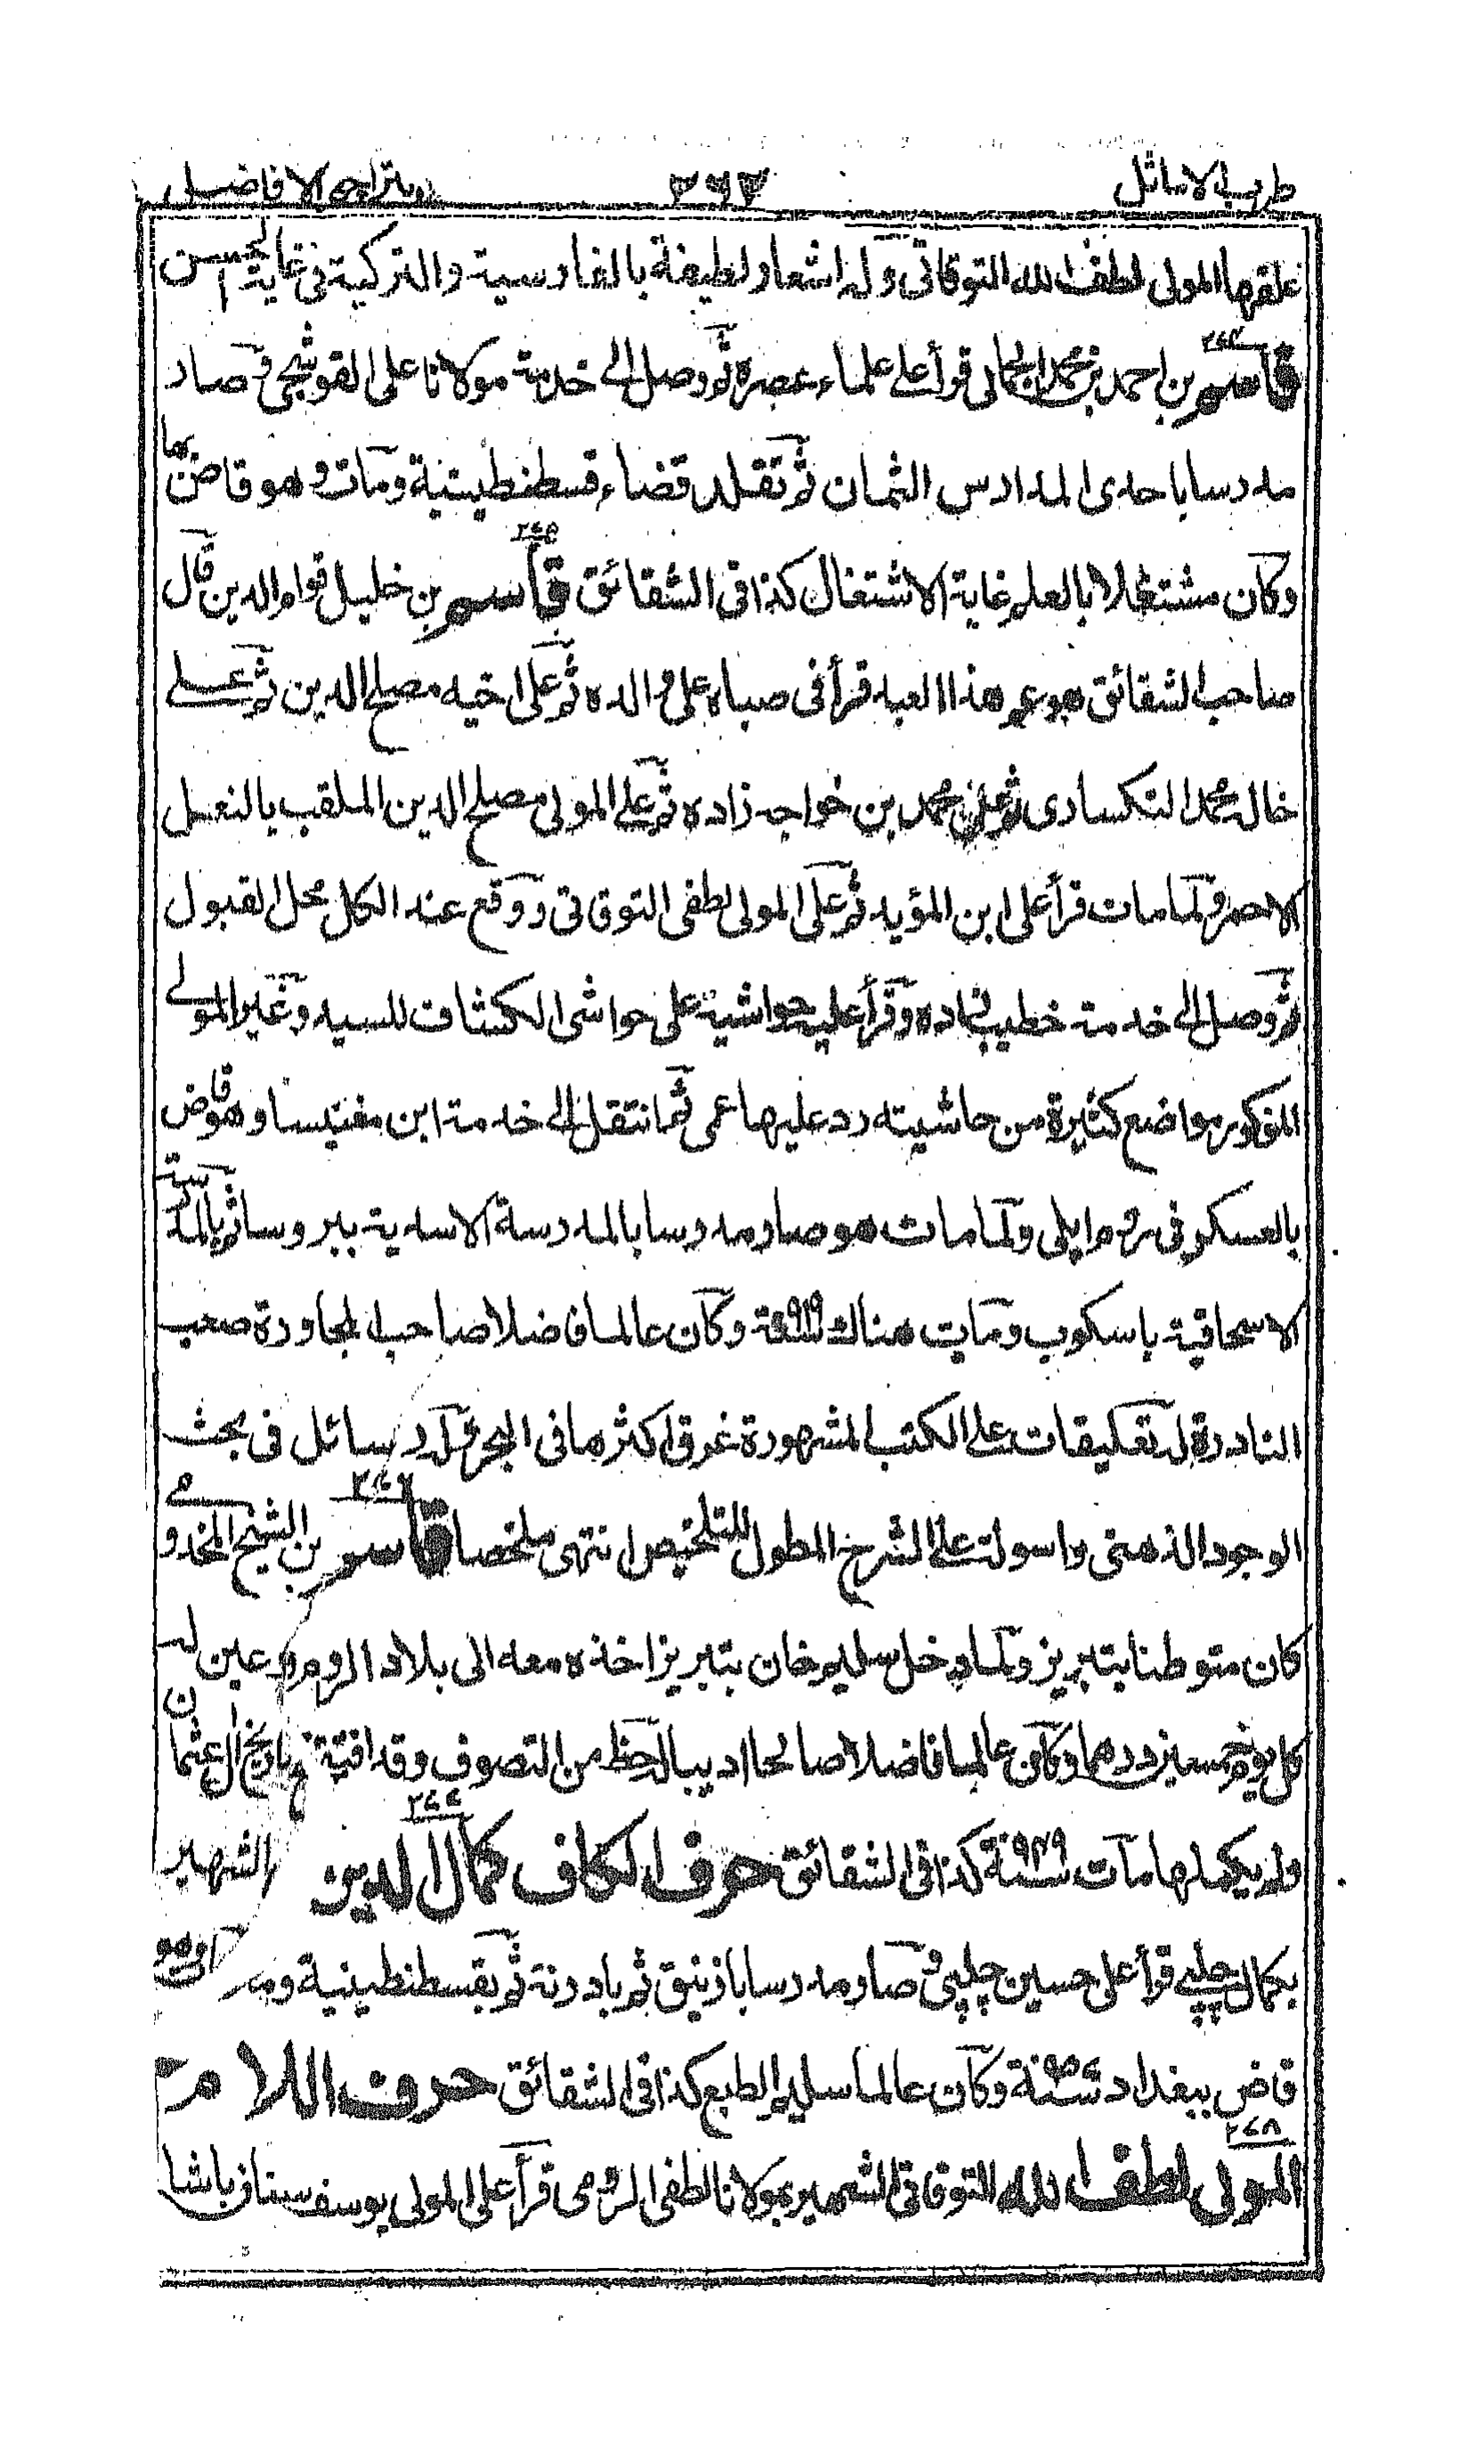 طرب الاماثل ٢٦٢ بتراجم الافاضل
علقها المولى لطف الله التوقاتى وله اشعار لطيفة بالفارسية والتركية فى غاية الحسن
٢٤٤
قاسم بن احمد بن محمد الجمالى قرأ على علماء عصره ثم وصل الى خدمة مولانا على القوشجى وصار
مدرسا باحدى المدارس الثمان ثم تقلد قضاء قسطنطينية ومات وهو قاض بها
٢٤٥
وكان مشتغلا بالعلم غاية الاشتغال كذا فى الشقائق قاسم بن خليل قوام الدين قال
صاحب الشقائق هو عم هذا العبد قرأ فى صباه على والده ثم على اخيه مصلح الدين ثم على
خاله محمد النكسارى ثم على محمد بن خواجه زاده ثم على المولى مصلح الدين الملقب بالنعل
الاحمر ولما مات قرأ على ابن المؤيد ثم على المولى لطفى التوقاتى ووقع عند الكل محل القبول
ثم وصل الى خدمة خطيب زاده وقرأ عليه حواشيه على حواشى الكشاف للسيد وغير المولى
المذكور مواضع كثيرة من حاشيته رد عليها عمى ثم انتقل الى خدمة ابن مغنيسا وهو قاض
بالعسكر فى روم ايلى ولما مات هو صار مدرسا بالمدرسة الاسدية ببروسا ثم بالمدرسة
الاسحاقية باسكوب ومات هناك سنة ٩١٩ وكان عالما فاضلا صاحب المحاورة صعب
النادرة له تعليقات على الكتب المشهورة غرق اكثرها فى البحر وله رسائل فى بحث
الوجود الذهنى واسولة على الشرح المطول للتلخيص انتهى ملخصا ٢٤٦ قاسم بن الشيخ المخدومى
كان متوطنا بتبريز ولما دخل سليم خان بتبريز اخذه معه الى بلاد الروم وعين له
كل يوم خمسين درهما وكان عالما فاضلا صالحا اديبا له حظ من التصوف وقد افتتح تاريخ آل عثمان
٢٤٧
ولم يكملها مات سنة ٩٣٩ كذا فى الشقائق حرف الكاف كمال الدين الشهير
بكمال چلپى قرأ على حسين چلپى وصار مدرسا بازنيق ثم بادرنة ثم بقسطنطينية ومات وهو
قاض ببغداد سنة ٩٥٤ وكان عالما سليم الطبع كذا فى الشقائق حرف اللام
٢٤٨
المولى لطف الله التوقاتى الشهير بمولانا لطفى الرومى قرأ على المولى يوسف سنان باشا